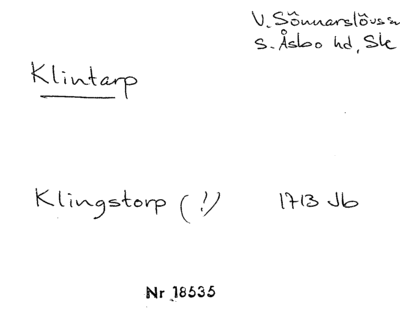 V. Sönnarslövs sn
S. Åsbo hd, Sk
Klintarp
Klingstorp (!)
1713 Jb
Nr 18535